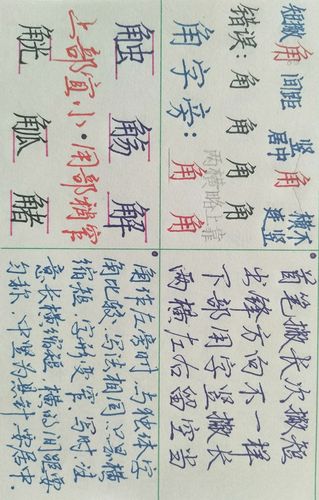 短撇 角 间距 竖居中 角 横不连竖
错误：角 角 角 角
两横略上靠
角字旁：角 角
触 觞 解
上部宜小·用部稍窄
觥 觚 觰
首笔撇长次撇短
出锋方向不一样
下部用字竖撇长
两横左右留空当
角作左旁时，与独体字
角比较，写法相同，只是横
缩短，字形变窄，写时注
意长横缩短，横的间距要
匀称，中竖为悬针，要居中.